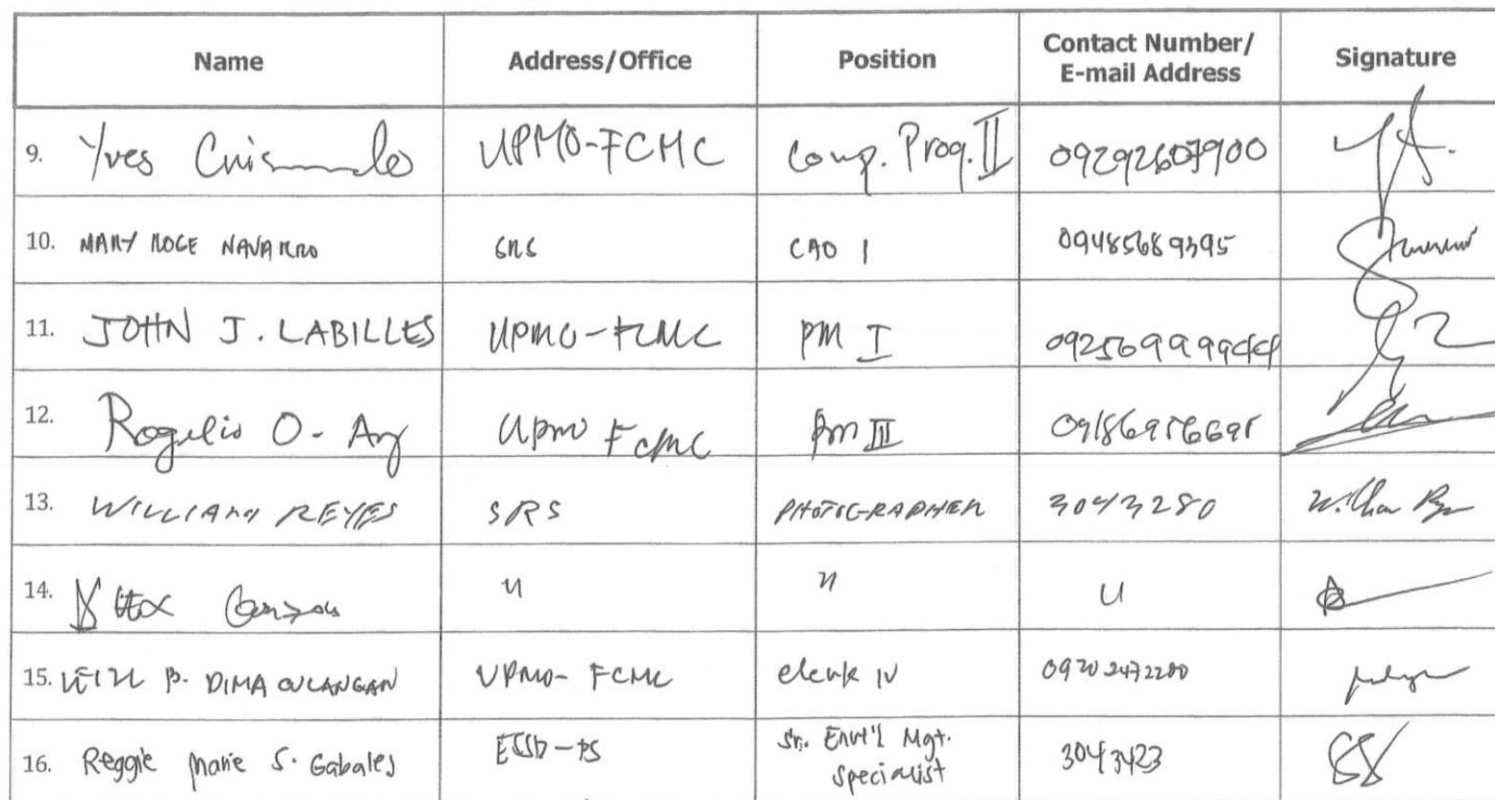 Name Address/Office Position Contact Number/ E-mail Address Signature
9. Yves UPMO-FCMC Comp. Prog. II 09292607900
10. MARY ROCE NAVARRO SRS CAO I 09485689395
11. JOHN J. LABILLES UPMO-FCMC PM I
12. Rogelio O. Ang UPMO FCMC PM III
13. WILLIAM REYES SRS PHOTOGRAPHER 3043280
14.
15. B. DIMACULANGAN UPMO-FCMC clerk IV 09202472200
16. Reggie Marie S. Gabales ESSD-PS Sr. Envt'l Mgt. Specialist 3043423